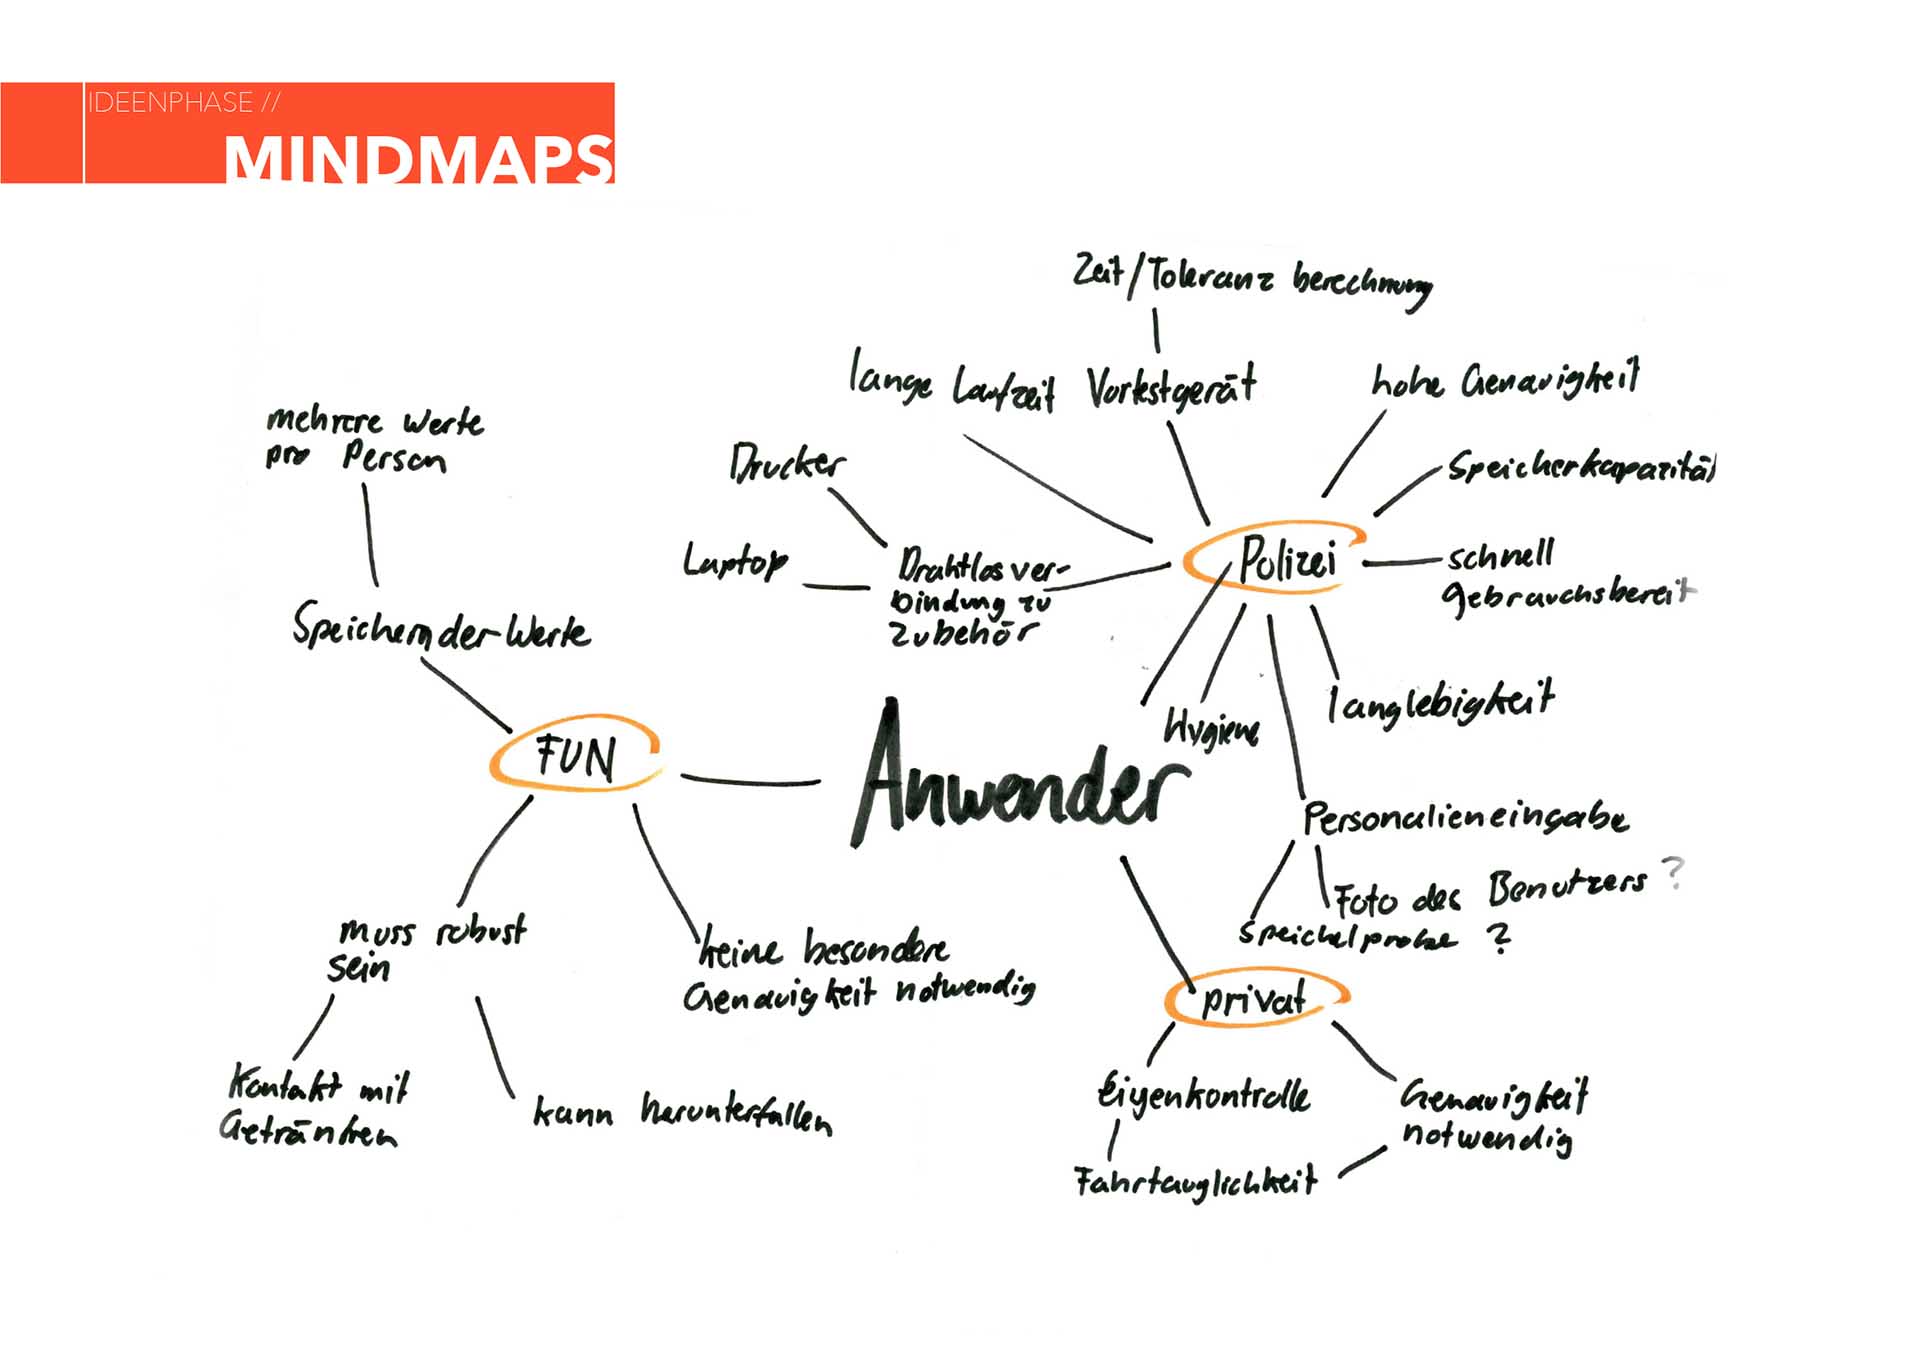 IDEENPHASE //
MINDMAPS
Zeit/Toleranz berechnung
lange Laufzeit
Vortestgerät
hohe Genauigkeit
Speicherkapazität
schnell
gebrauchsbereit
Drucker
Laptop
Drahtlosver-
bindung zu
Zubehör
Polizei
Hygiene
langlebigkeit
Personalieneingabe
Foto des Benutzers ?
Speichelprobe ?
mehrere Werte
pro Person
Speichern der Werte
FUN
Anwender
muss robust
sein
keine besondere
Genauigkeit notwendig
Kontakt mit
Getränken
kann herunterfallen
privat
Eigenkontrolle
Genauigkeit
notwendig
Fahrtauglichkeit